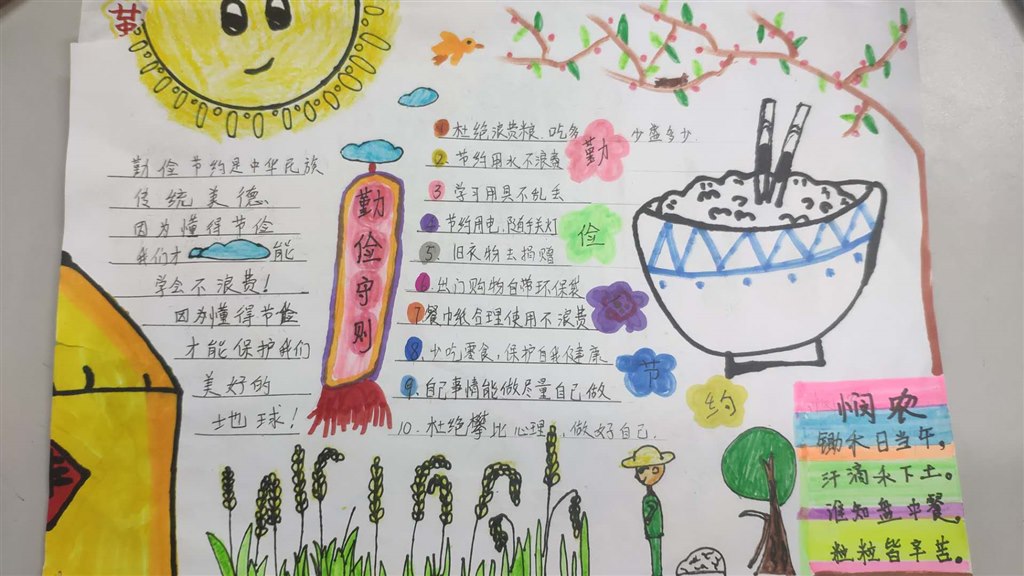 勤俭节约是中华民族
传统美德.
因为懂得节俭
我们才 能
学会不浪费!
因为懂得节俭
才能保护我们
美好的
地球!
勤俭守则
1 杜绝浪费粮.吃多 少盛多少.
2 节约用水不浪费
3 学习用具不乱丢
4 节约用电.随手关灯
5 旧衣物去捐赠
6 出门购物自带环保袋
7 餐巾纸合理使用不浪费
8 少吃零食,保护自我健康
9 自己事情能做尽量自己做
10.杜绝攀比心理,做好自己.
勤
俭
节
约
悯农
锄禾日当午,
汗滴禾下土。
谁知盘中餐,
粒粒皆辛苦。